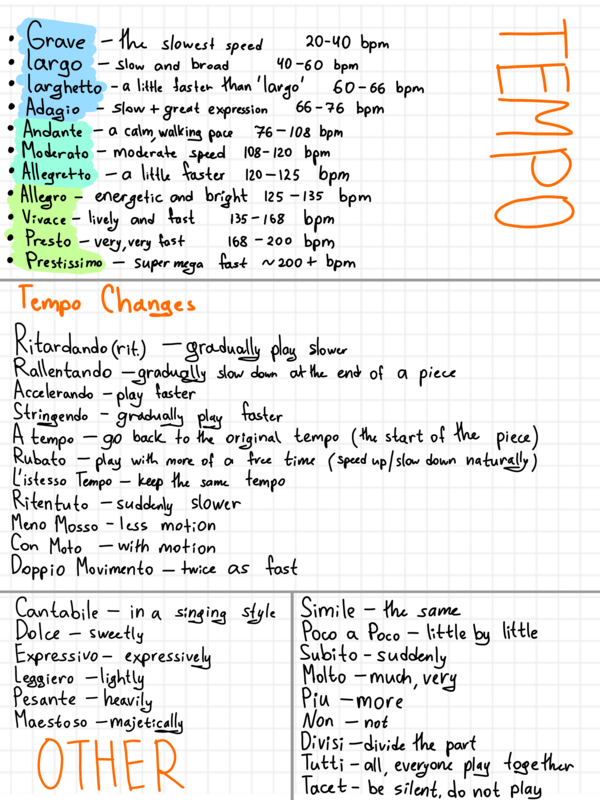 TEMPO
• Grave – the slowest speed 20-40 bpm
• largo – slow and broad 40-60 bpm
• larghetto – a little faster than 'largo' 60-66 bpm
• Adagio – slow + great expression 66-76 bpm
• Andante – a calm, walking pace 76-108 bpm
• Moderato – moderate speed 108-120 bpm
• Allegretto – a little faster 120-125 bpm
• Allegro – energetic and bright 125-135 bpm
• Vivace – lively and fast 135-168 bpm
• Presto – very, very fast 168-200 bpm
• Prestissimo – super mega fast ~200+ bpm
Tempo Changes
Ritardando (rit.) – gradually play slower
Rallentando – gradually slow down at the end of a piece
Accelerando – play faster
Stringendo – gradually play faster
A tempo – go back to the original tempo (the start of the piece)
Rubato – play with more of a free time (speed up/slow down naturally)
L'istesso Tempo – keep the same tempo
Ritentuto – suddenly slower
Meno Mosso – less motion
Con Moto – with motion
Doppio Movimento – twice as fast
Cantabile – in a singing style
Dolce – sweetly
Expressivo – expressively
Leggiero – lightly
Pesante – heavily
Maestoso – majetically
OTHER
Simile – the same
Poco a Poco – little by little
Subito – suddenly
Molto – much, very
Piu – more
Non – not
Divisi – divide the part
Tutti – all, everyone play together
Tacet – be silent, do not play